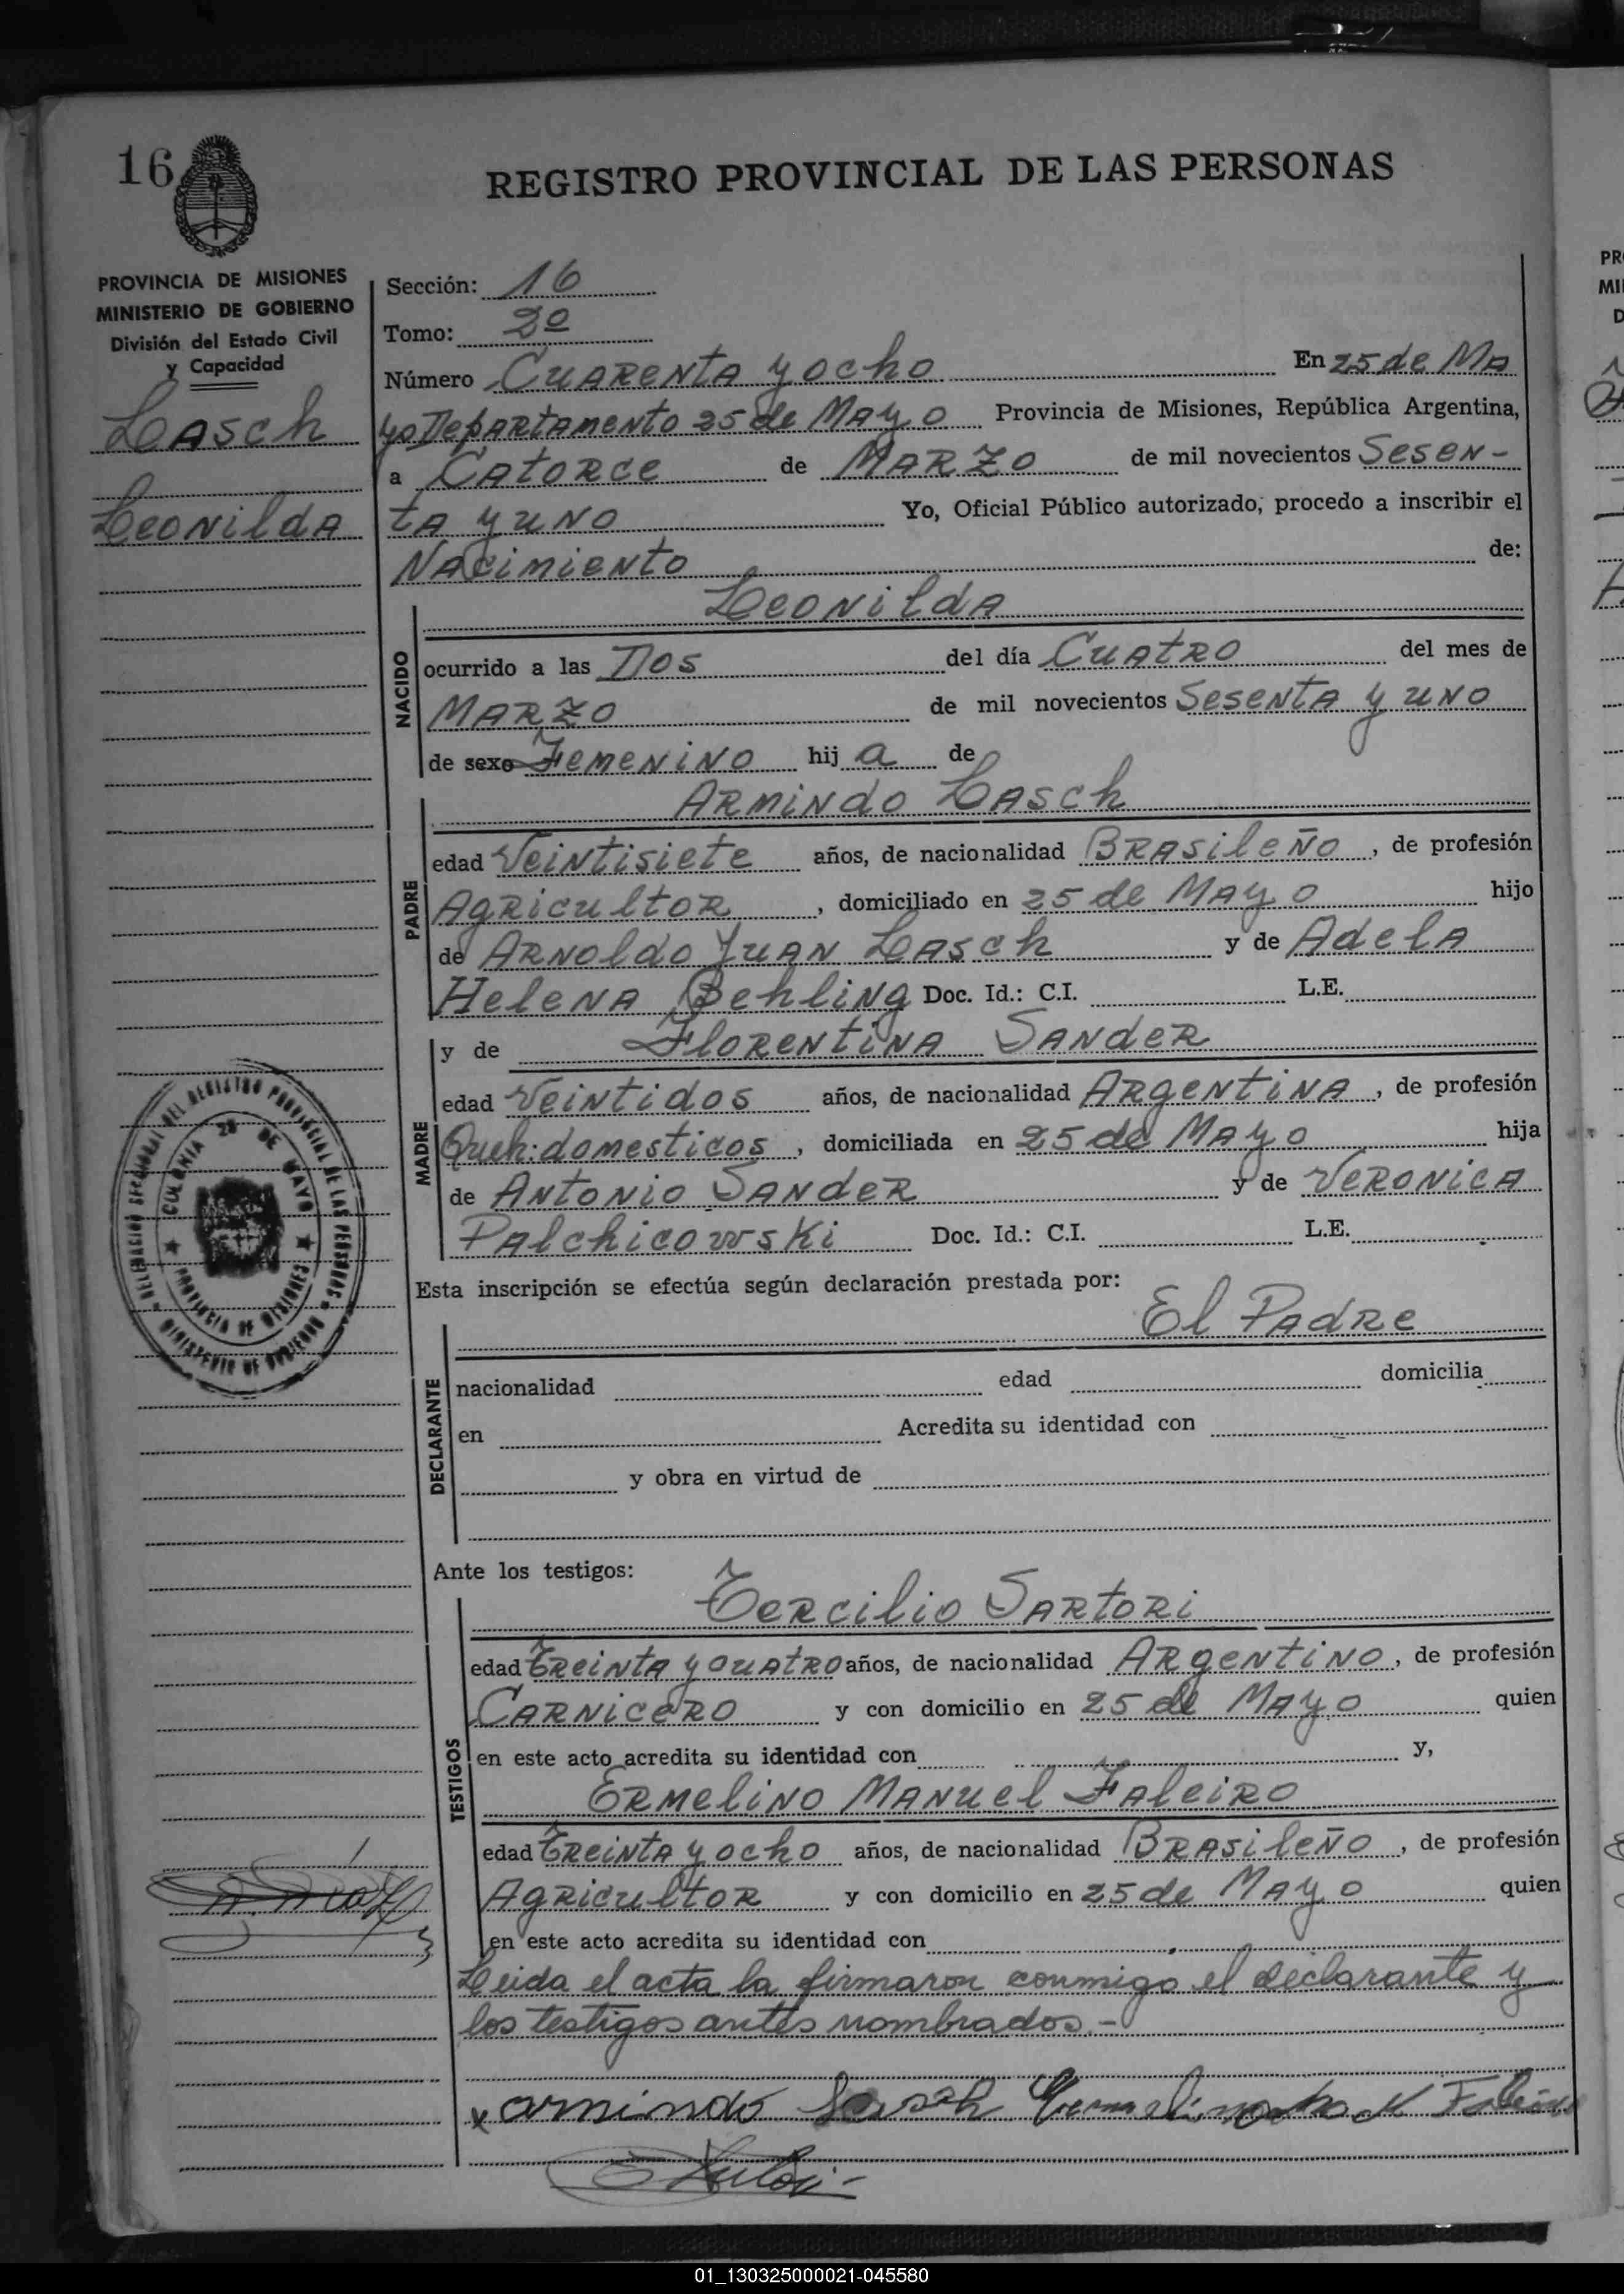 16
REGISTRO PROVINCIAL DE LAS PERSONAS
PROVINCIA DE MISIONES
MINISTERIO DE GOBIERNO
División del Estado Civil
y Capacidad
Lasch
Leonilda
Sección: 16
Tomo: 2º
Número Cuarenta y ocho En 25 de Ma
yo Departamento 25 de Mayo Provincia de Misiones, República Argentina,
a Catorce de Marzo de mil novecientos Sesen-
ta y uno Yo, Oficial Público autorizado, procedo a inscribir el
Nacimiento de:
Leonilda
NACIDO
ocurrido a las Dos del día Cuatro del mes de
Marzo de mil novecientos Sesenta y uno
de sexo Femenino hij a de
Armindo Lasch
PADRE
edad Veintisiete años, de nacionalidad Brasileño, de profesión
Agricultor, domiciliado en 25 de Mayo hijo
de Arnoldo Juan Lasch y de Adela
Helena Behling Doc. Id.: C.I. L.E.
y de Florentina Sander
MADRE
edad Veintidos años, de nacionalidad Argentina, de profesión
Queh: domesticos, domiciliada en 25 de Mayo hija
de Antonio Sander y de Veronica
Palchicowski Doc. Id.: C.I. L.E.
Esta inscripción se efectúa según declaración prestada por:
El Padre
DECLARANTE
nacionalidad edad domicilia
en Acredita su identidad con
y obra en virtud de
Ante los testigos:
Tercilio Sartori
TESTIGOS
edad Treinta y cuatro años, de nacionalidad Argentino, de profesión
Carnicero y con domicilio en 25 de Mayo quien
en este acto acredita su identidad con y,
Ermelino Manuel Faleiro
edad Treinta y ocho años, de nacionalidad Brasileño, de profesión
Agricultor y con domicilio en 25 de Mayo quien
en este acto acredita su identidad con
Leida el acta la firmaron conmigo el declarante y
los testigos antes nombrados.-
x armindo Lasch
DELEGACION SECCIONAL DEL REGISTRO PROVINCIAL DE LAS PERSONAS
MINISTERIO DE GOBIERNO
COLONIA 25 DE MAYO
PROVINCIA DE MISIONES
01_130325000021-045580